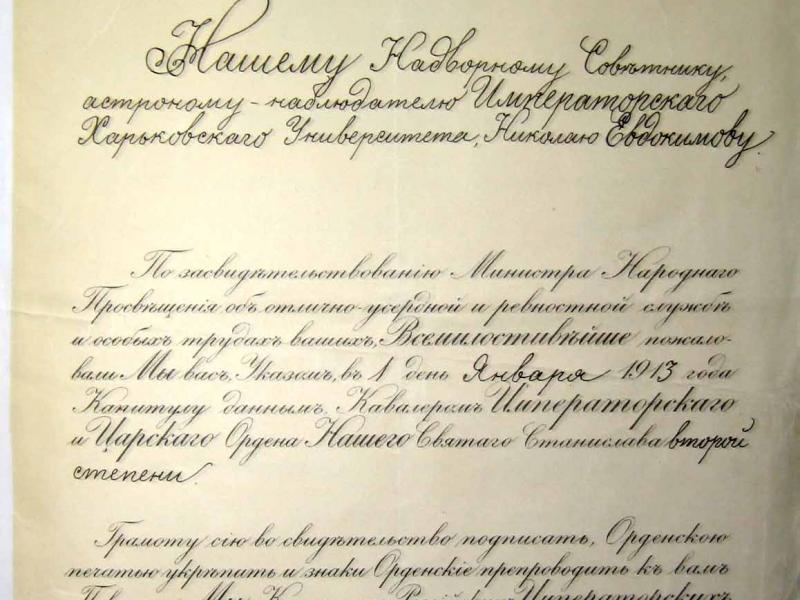 Нашему Надворному Совѣтнику,
астроному-наблюдателю Императорскаго
Харьковскаго Университета, Николаю Евдокимову.
По засвидѣтельствованію Министра Народнаго
Просвѣщенія объ отлично-усердной и ревностной службѣ
и особыхъ трудахъ вашихъ, Всемилостивѣйше пожало-
вали Мы васъ, Указомъ, въ 1 день Января 1913 года
Капитулу даннымъ, Кавалеромъ Императорскаго
и Царскаго Ордена Нашего Святаго Станислава второй
степени.
Грамоту сію во свидѣтельство подписать, Орденскою
печатью укрѣпить и знаки Орденскіе препроводить къ вамъ
Мы Императорскихъ